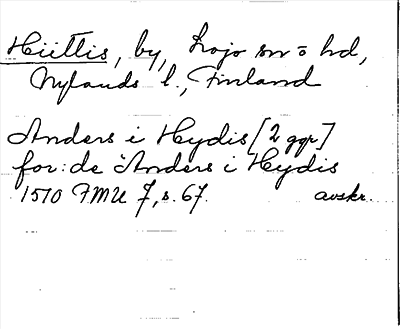 Hüttis, by, Lojo sn o hd,
Nylands l., Finland
Anders i Hydis [2 ggr]
for: de Anders i Hydis
1510 FMU 7, s. 67. avskr.